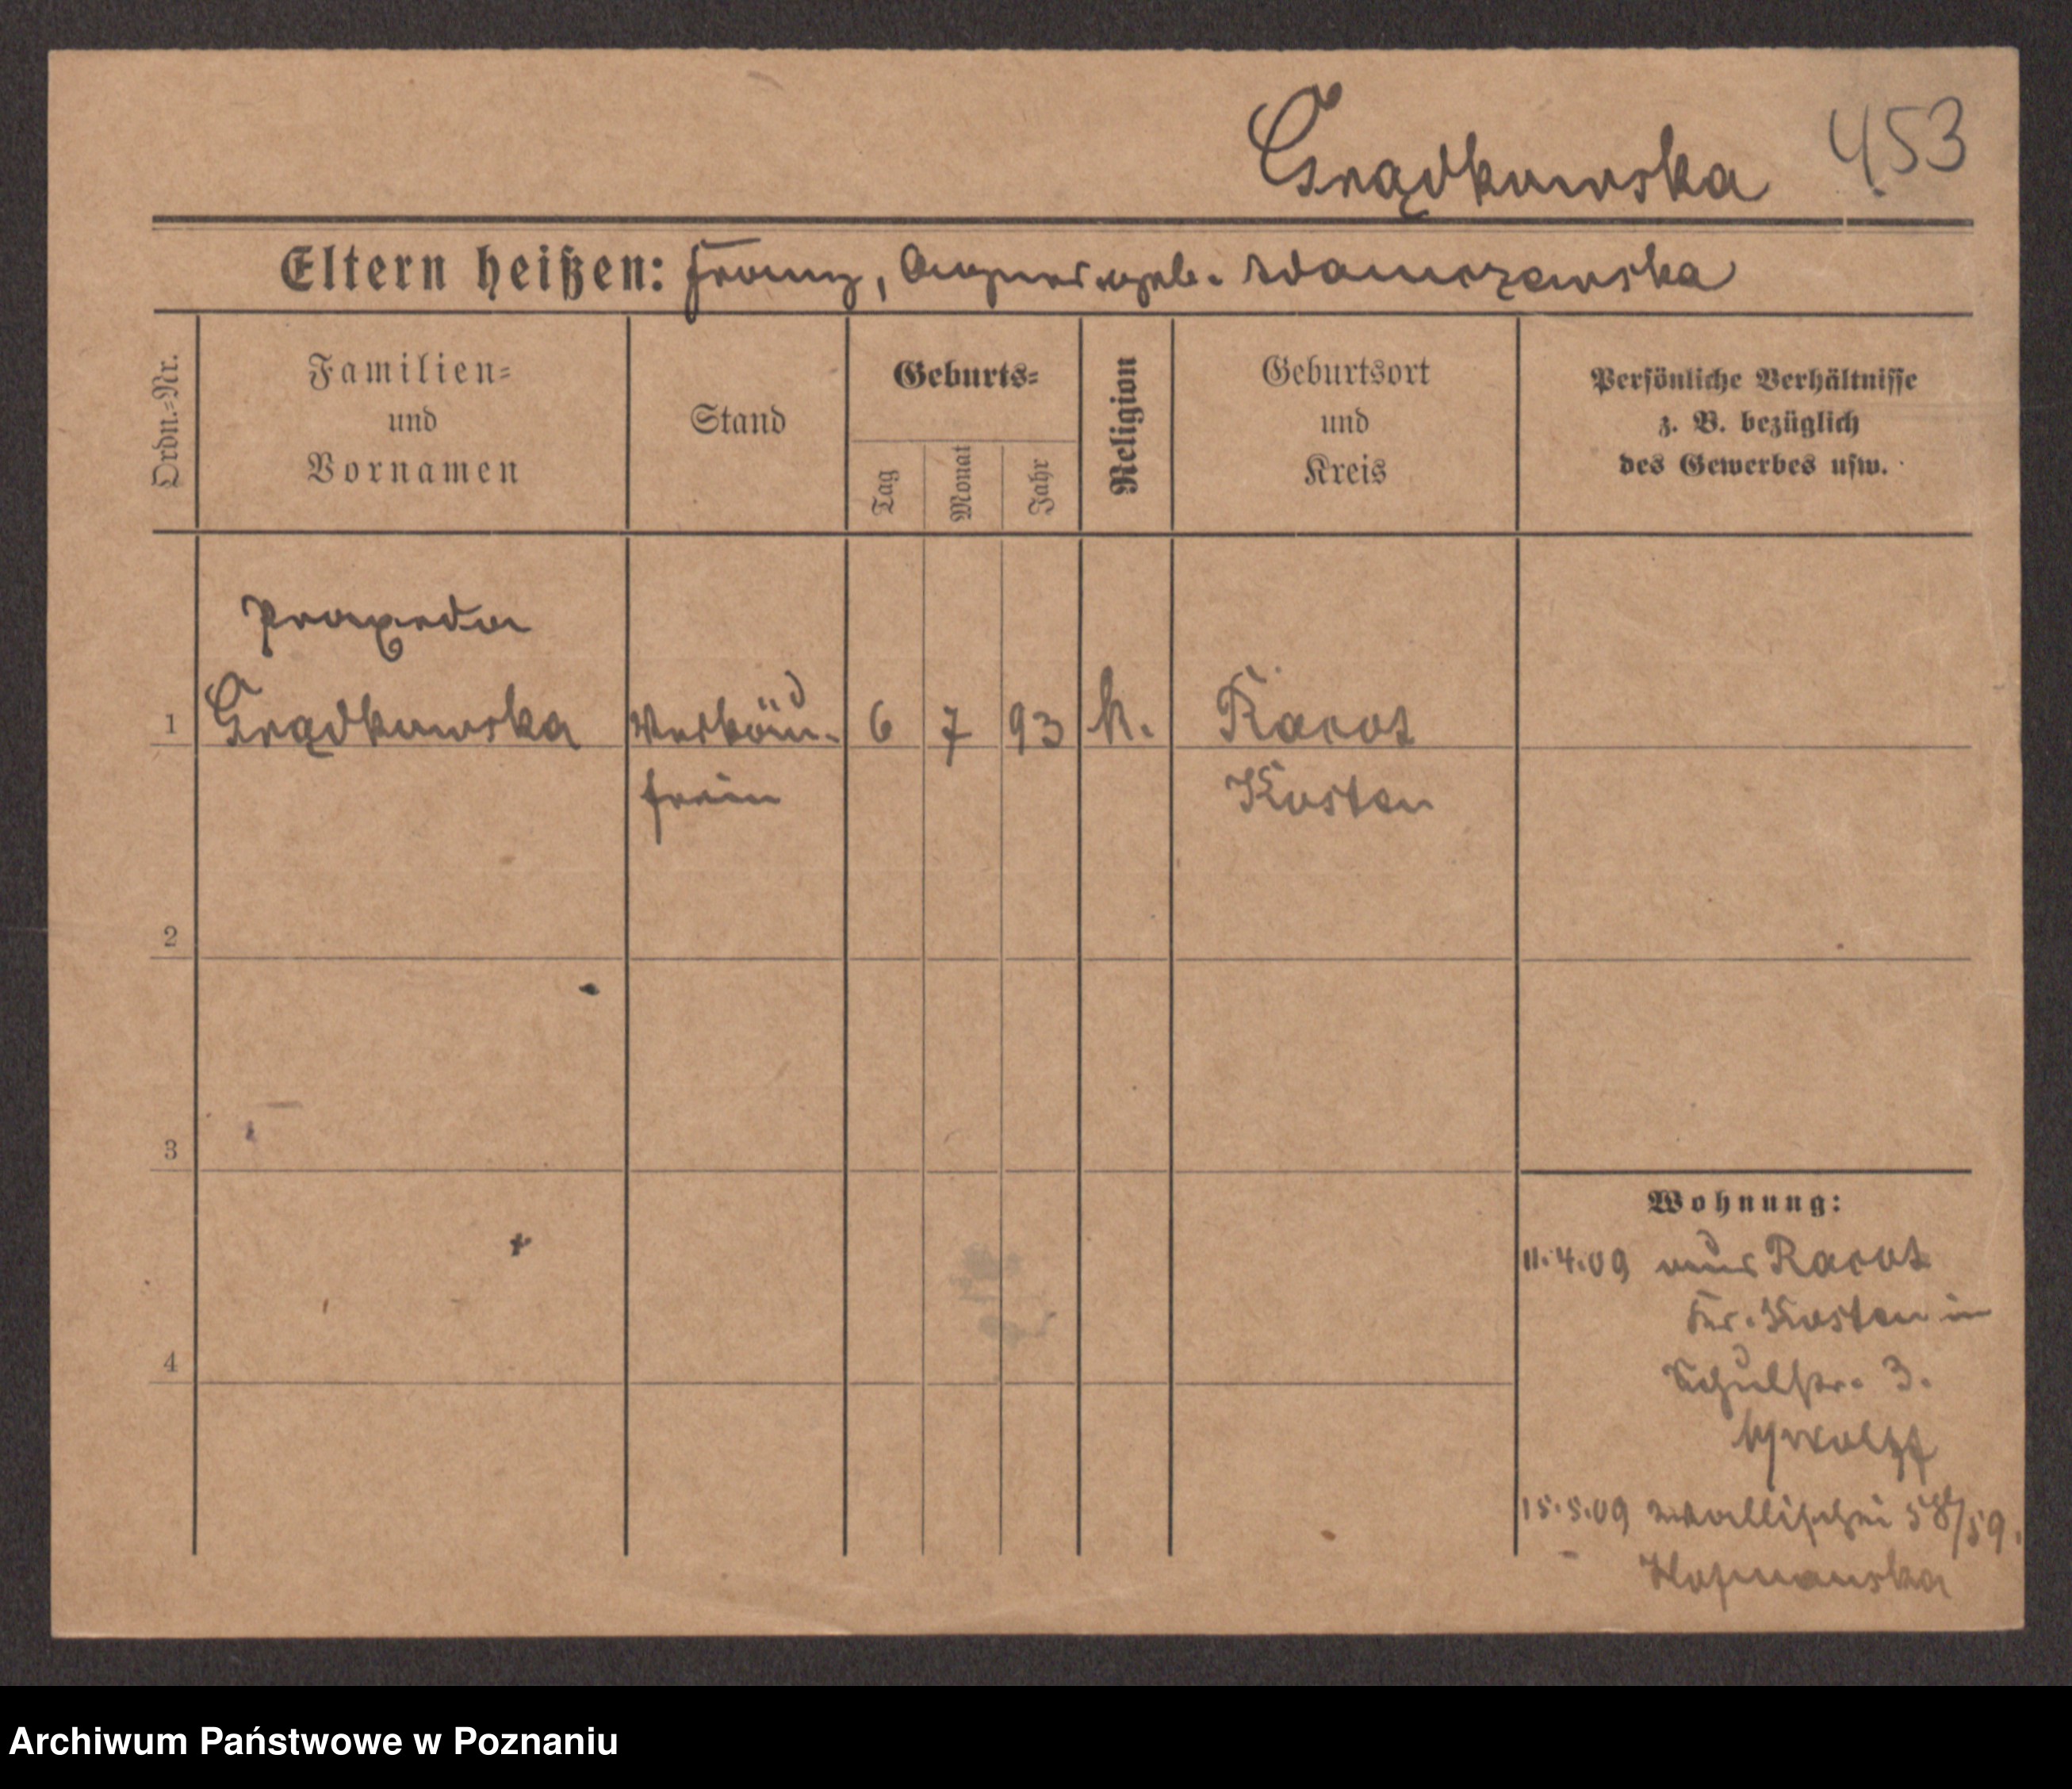 Grądkowska 453
Eltern heißen: Franz, Agnes geb. Adamczewska
Ordn.=Nr.
Familien=
und
Vornamen
Stand
Geburts=
Tag
Monat
Jahr
Religion
Geburtsort
und
Kreis
Persönliche Verhältnisse
z. B. bezüglich
des Gewerbes usw.
Praxeda
1 Grądkowska Verkäu- 6 7 93 k. Racot
ferin Kosten
2
3
4
Wohnung:
11.4.09 aus Racot
Kr. Kosten in
Schulstr. 3.
15.5.09 Wallischei 58/59.
Hofmanska
Archiwum Państwowe w Poznaniu